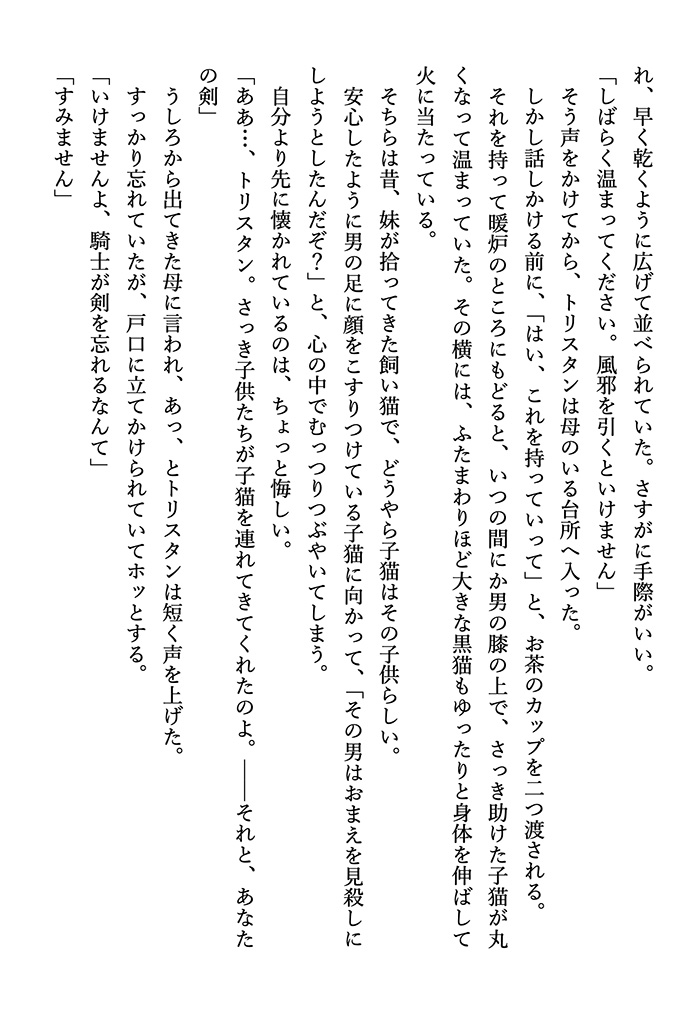 れ、早く乾くように広げて並べられていた。さすがに手際がいい。
「しばらく温まってください。風邪を引くといけません」
そう声をかけてから、トリスタンは母のいる台所へ入った。
しかし話しかける前に、「はい、これを持っていって」と、お茶のカップを二つ渡される。
それを持って暖炉のところにもどると、いつの間にか男の膝の上で、さっき助けた子猫が丸
くなって温まっていた。その横には、ふたまわりほど大きな黒猫もゆったりと身体を伸ばして
火に当たっている。
そちらは昔、妹が拾ってきた飼い猫で、どうやら子猫はその子供らしい。
安心したように男の足に顔をこすりつけている子猫に向かって、「その男はおまえを見殺しに
しようとしたんだぞ？」と、心の中でむっつりつぶやいてしまう。
自分より先に懐かれているのは、ちょっと悔しい。
「ああ…、トリスタン。さっき子供たちが子猫を連れてきてくれたのよ。――それと、あなた
の剣」
うしろから出てきた母に言われ、あっ、とトリスタンは短く声を上げた。
すっかり忘れていたが、戸口に立てかけられていてホッとする。
「いけませんよ、騎士が剣を忘れるなんて」
「すみません」